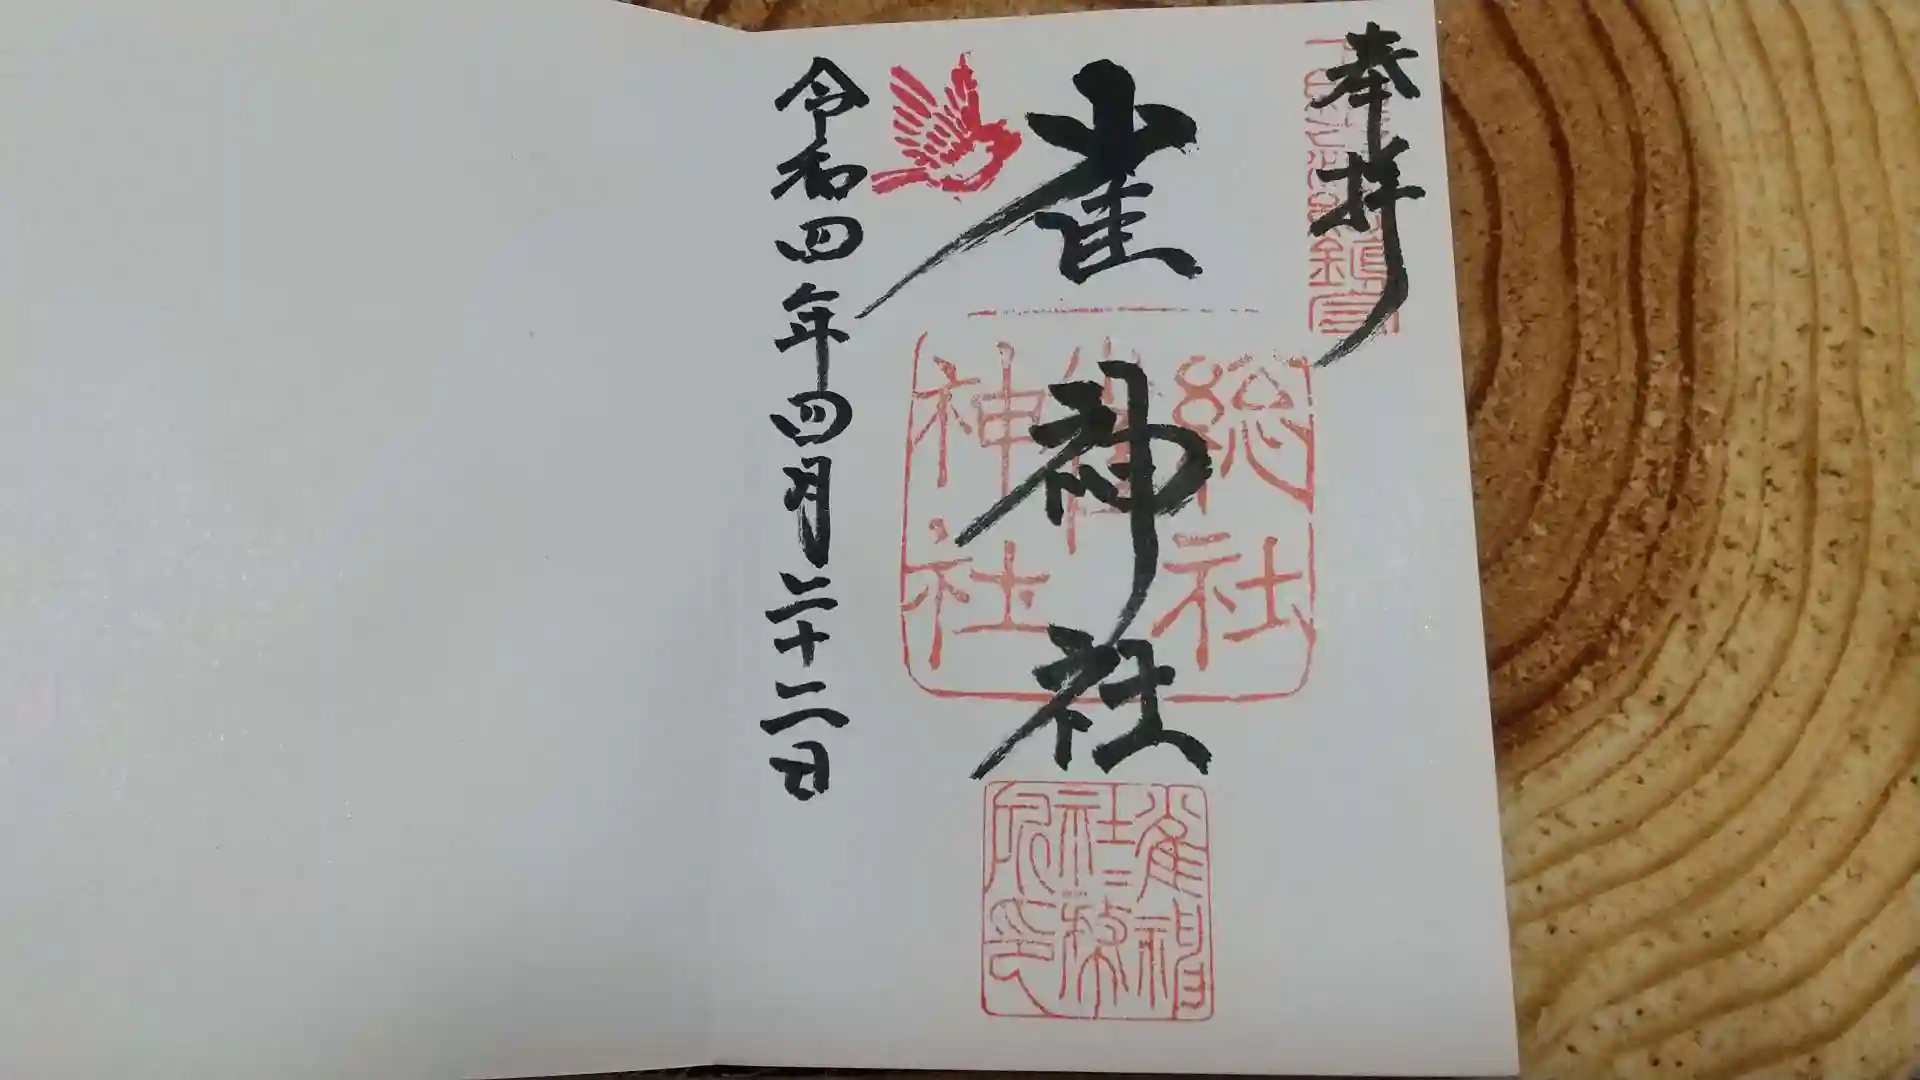 奉拝
雀神社
総社
雀
神社
雀神
社務
之印
令和四年四月二十二日